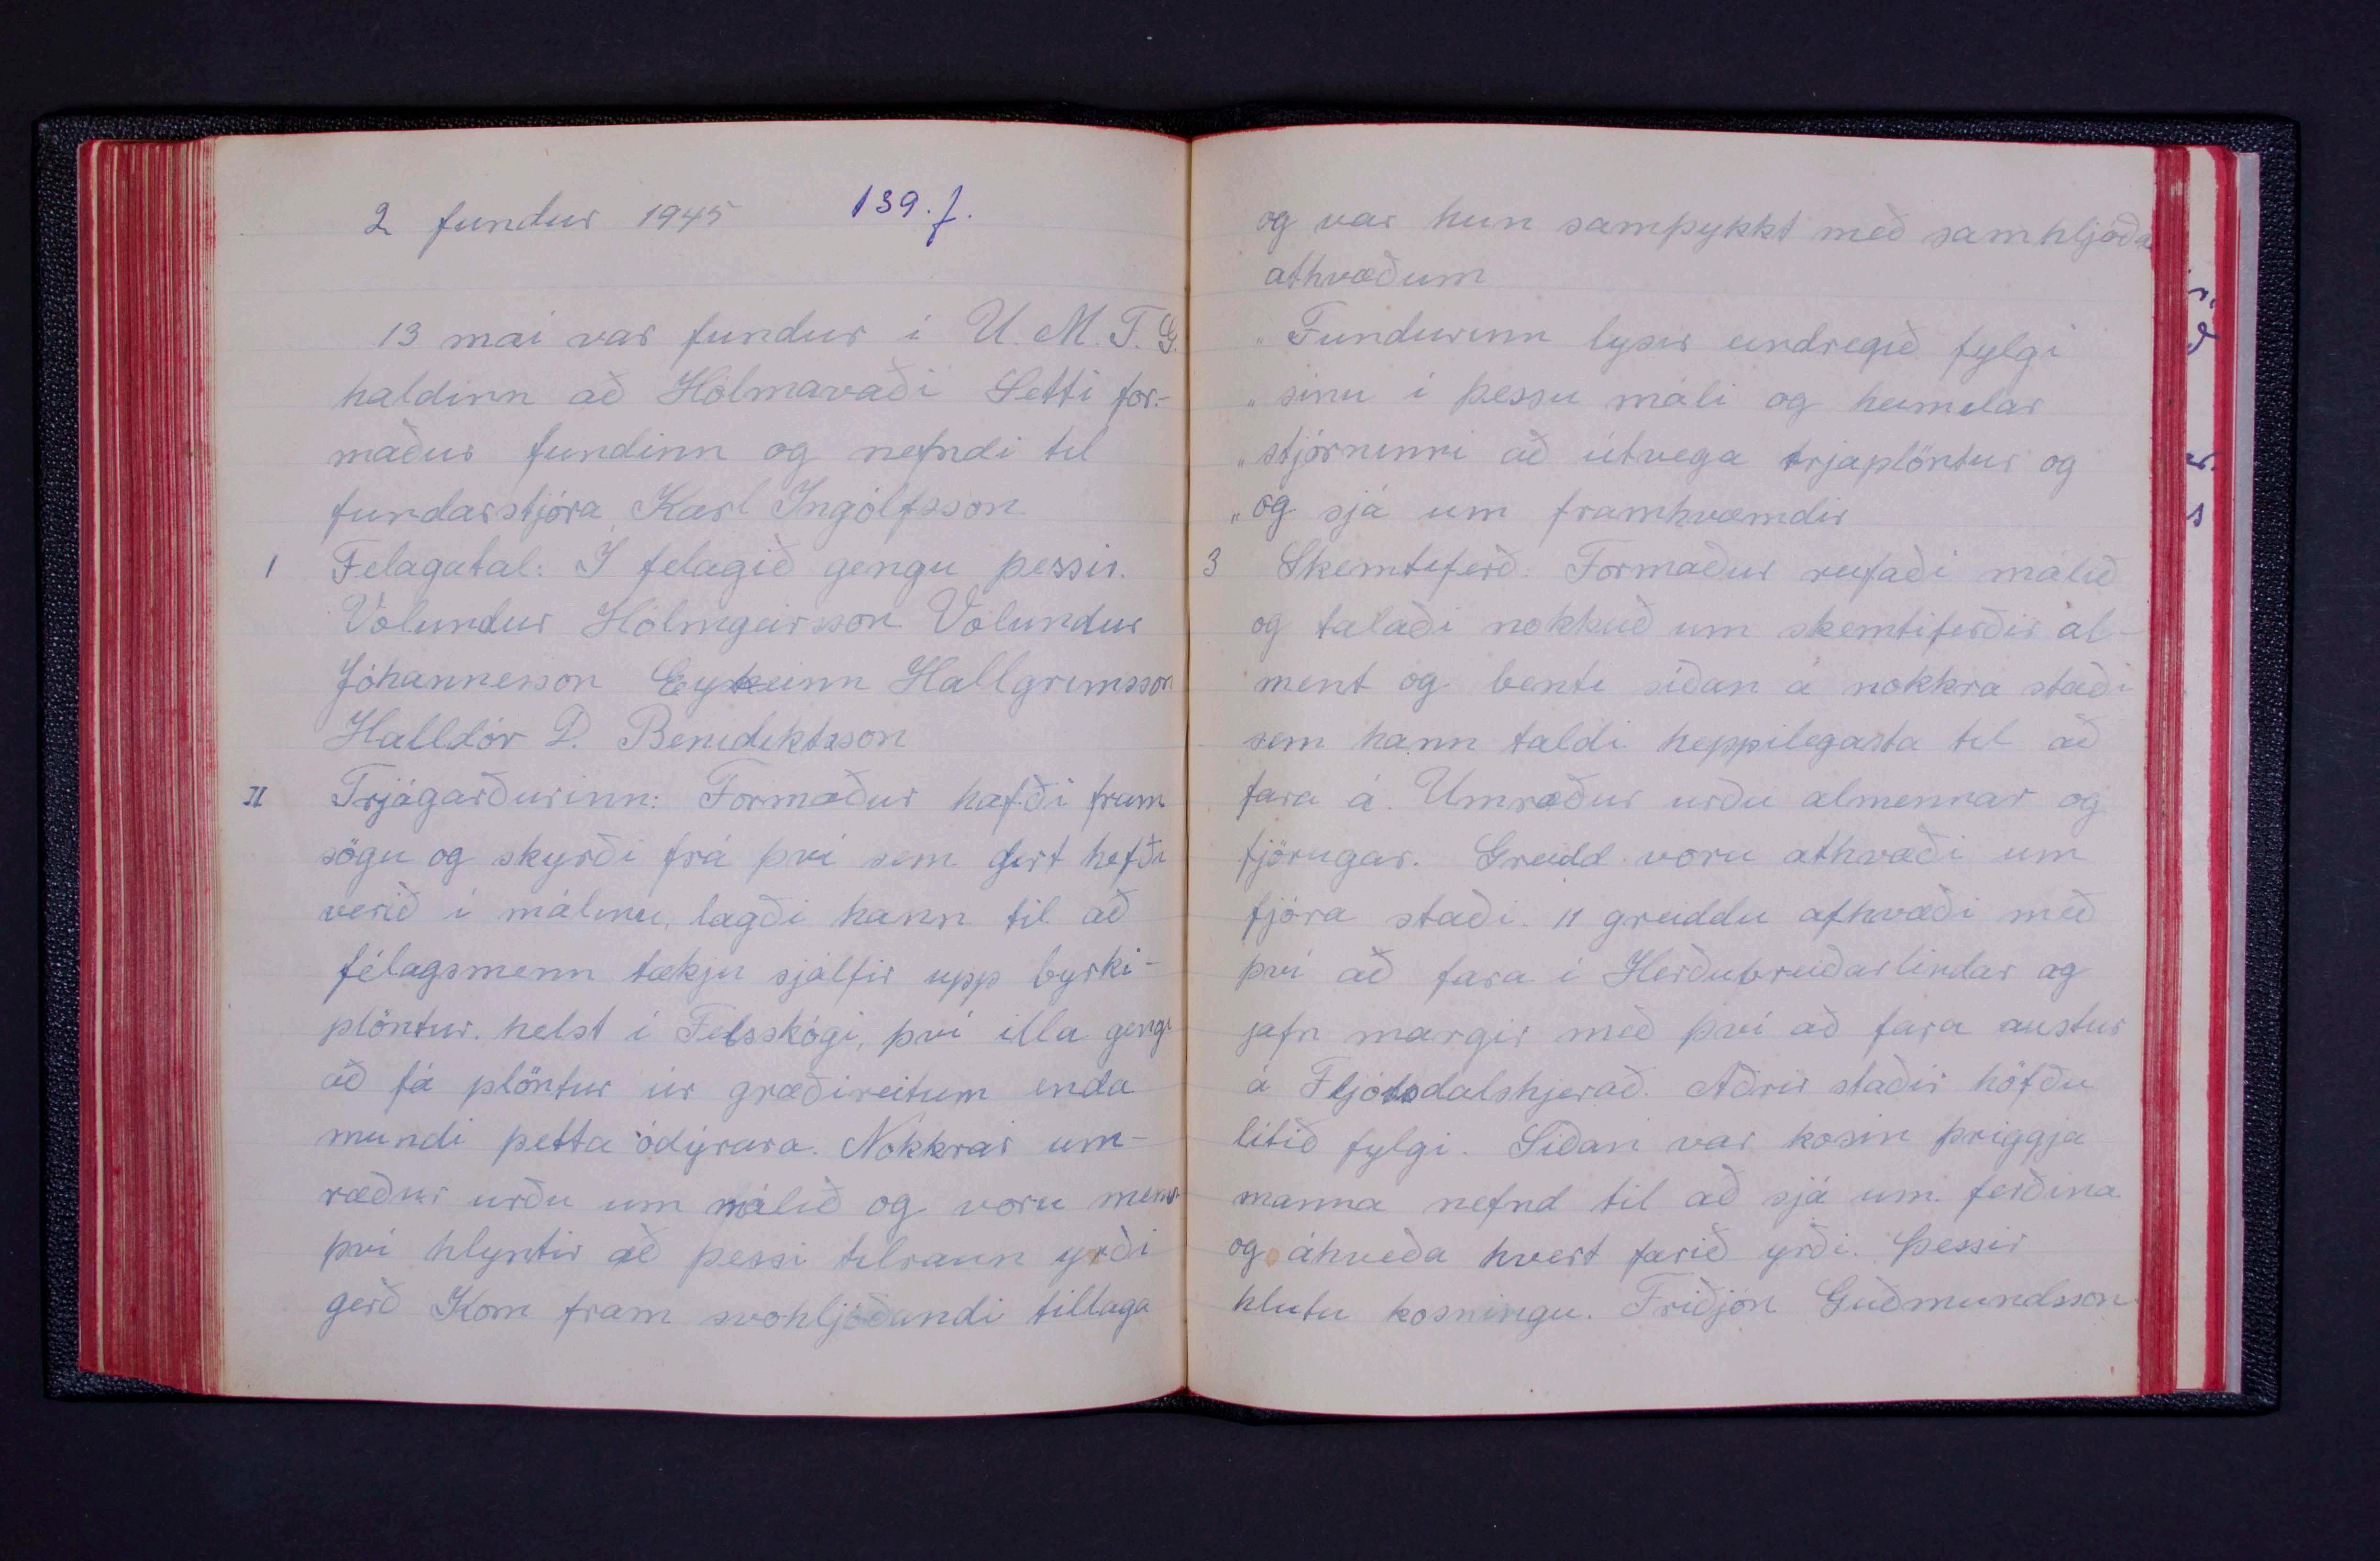 2 fundur 1945 139. f.
13 mai var fundur i U. M. F. G.
haldinn að Hólmavaði Setti for-
maður fundinn og nefndi til
fundarstjóra Karl Ingólfsson
1 Felagatal: I felagið gengu þessir.
Völundur Hólmgeirsson Völundur
Jóhannesson Eysteinn Hallgrimsson
Halldór D. Benediktsson
II Trjágarðurinn: Formaður hafði fram
sögu og skyrði frá því sem gert hefði
verið i málinu, lagði hann til að
félagsmenn tækju sjálfir upp byrki-
plöntur. helst i Fellsskógi, því illa gengi
að fá plöntur úr græðireitum enda
mundi þetta ódýrara. Nokkrar um-
ræður urðu um málið og voru menn
því hlyntir að þessi tilraun yrði
gerð Kom fram svohljóðandi tillaga
og var hun samþykkt með samhljóða
athvæðum
„ Fundurinn lysir eindregið fylgi
„ sinu i þessu máli og heimilar
„ stjórninni að útvega trjaplöntur og
„ og sjá um framhvæmdir
3 Skemtiferð. Formaður reifaði málið
og talaði nokkuð um skemtiferðir al-
ment og benti síðan á nokkra staði
sem hann taldi heppilegasta til að
fara á. Umræður urðu almennar og
fjörugar. Greidd voru athvæði um
fjóra staði. 11 greiddu athvæði með
því að fara i Herðubreiðarlindar og
jafn margir með því að fara austur
á Fljótsdalshjerað. Aðrir staðir höfðu
lítið fylgi. Síðan var kosin þriggja
manna nefnd til að sjá um ferðina
og áhveða hvert farið yrði. Þessir
hlutu kosningu. Friðjón Guðmundsson